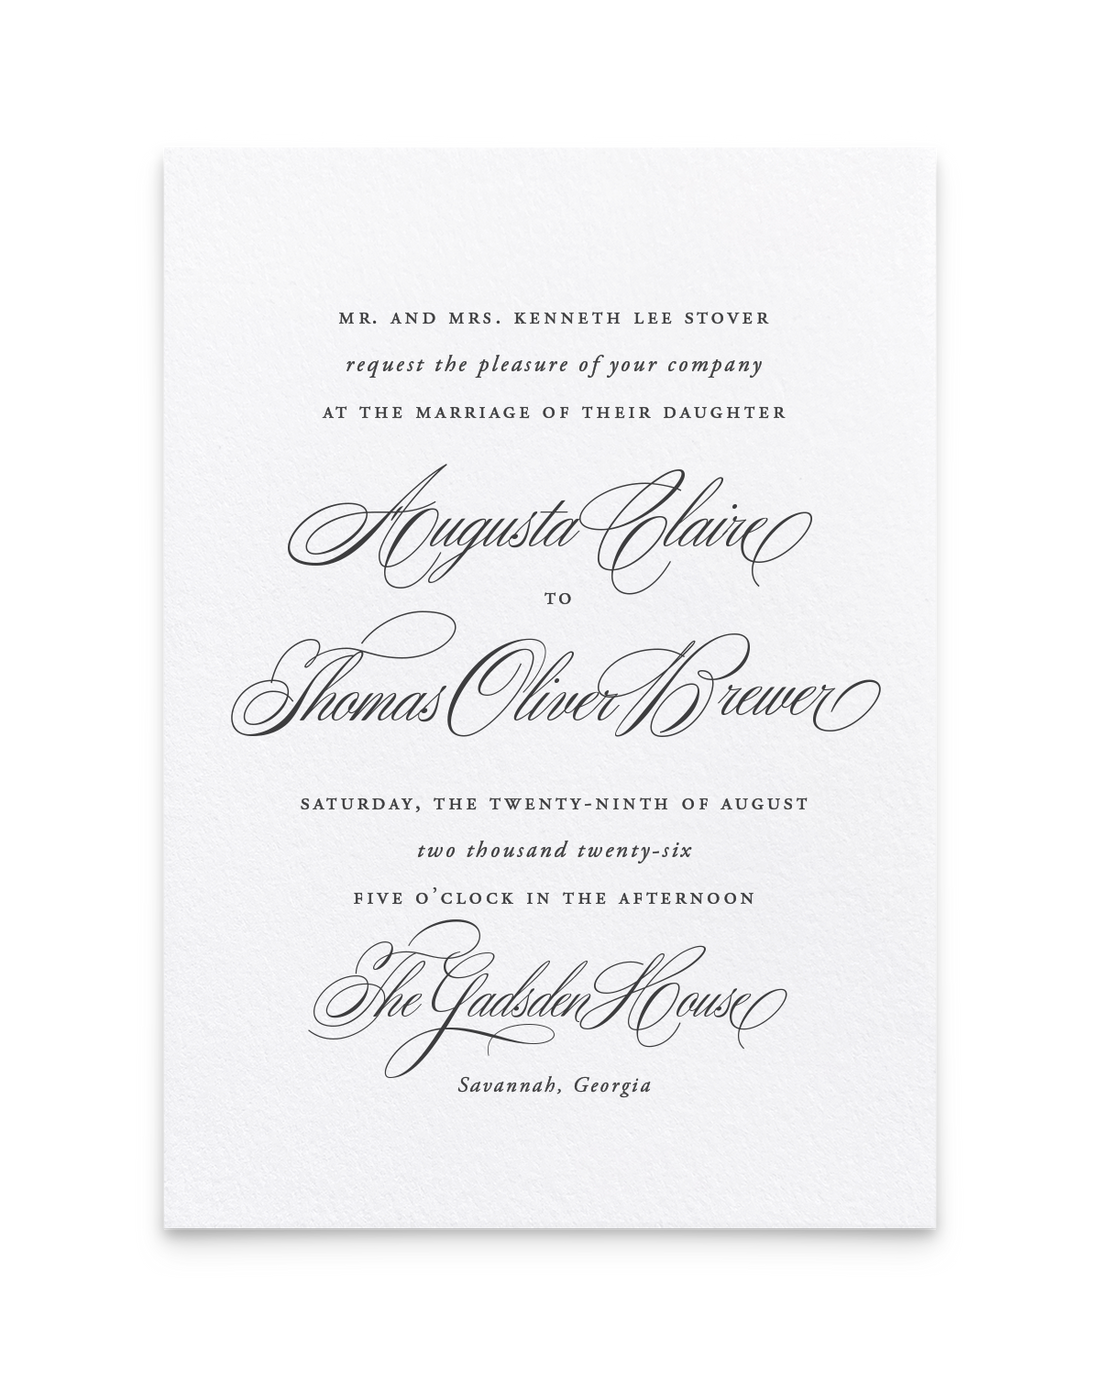 MR. AND MRS. KENNETH LEE STOVER
request the pleasure of your company
AT THE MARRIAGE OF THEIR DAUGHTER
Augusta Claire
TO
Thomas Oliver Brewer
SATURDAY, THE TWENTY-NINTH OF AUGUST
two thousand twenty-six
FIVE O’CLOCK IN THE AFTERNOON
The Gadsden House
Savannah, Georgia